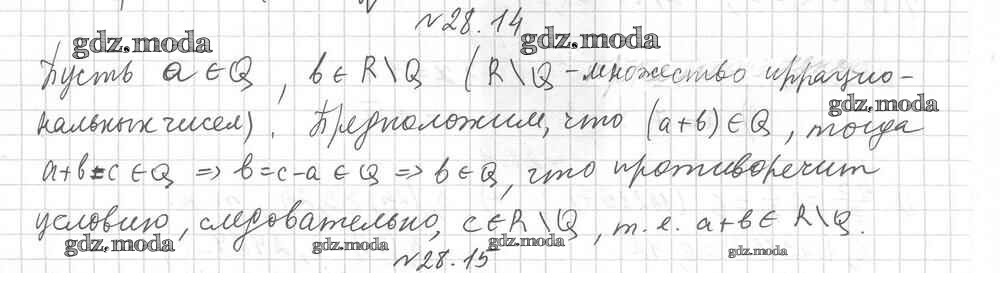 №28.14
gdz.moda gdz.moda
Пусть a ∈ Q, b ∈ R\Q (R\Q - множество иррацио-
gdz.moda
нальных чисел). Предположим, что (a+b) ∈ Q, тогда
a+b=c ∈ Q ⇒ b=c-a ∈ Q ⇒ b ∈ Q, что противоречит
условию, следовательно, c ∈ R\Q, т.е. a+b ∈ R\Q.
gdz.moda gdz.moda gdz.moda gdz.moda
№28.15